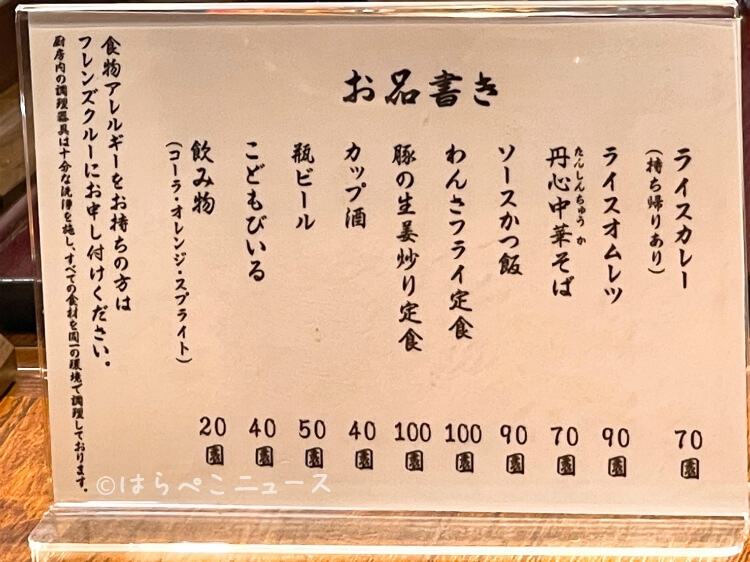 お品書き
ライスカレー 70園
(持ち帰りあり)
ライスオムレツ 90園
丹心中華そば 70園
たんしんちゅうか
ソースかつ飯 90園
わんさフライ定食 100園
豚の生姜炒り定食 100園
カップ酒 40園
瓶ビール 50園
こどもびいる 40園
飲み物 20園
(コーラ・オレンジ・スプライト)
食物アレルギーをお持ちの方は
フレンズクルーにお申し付けください。
厨房内の調理器具は十分な洗浄を施し、すべての食材を同一の環境で調理しております。
©はらぺこニュース